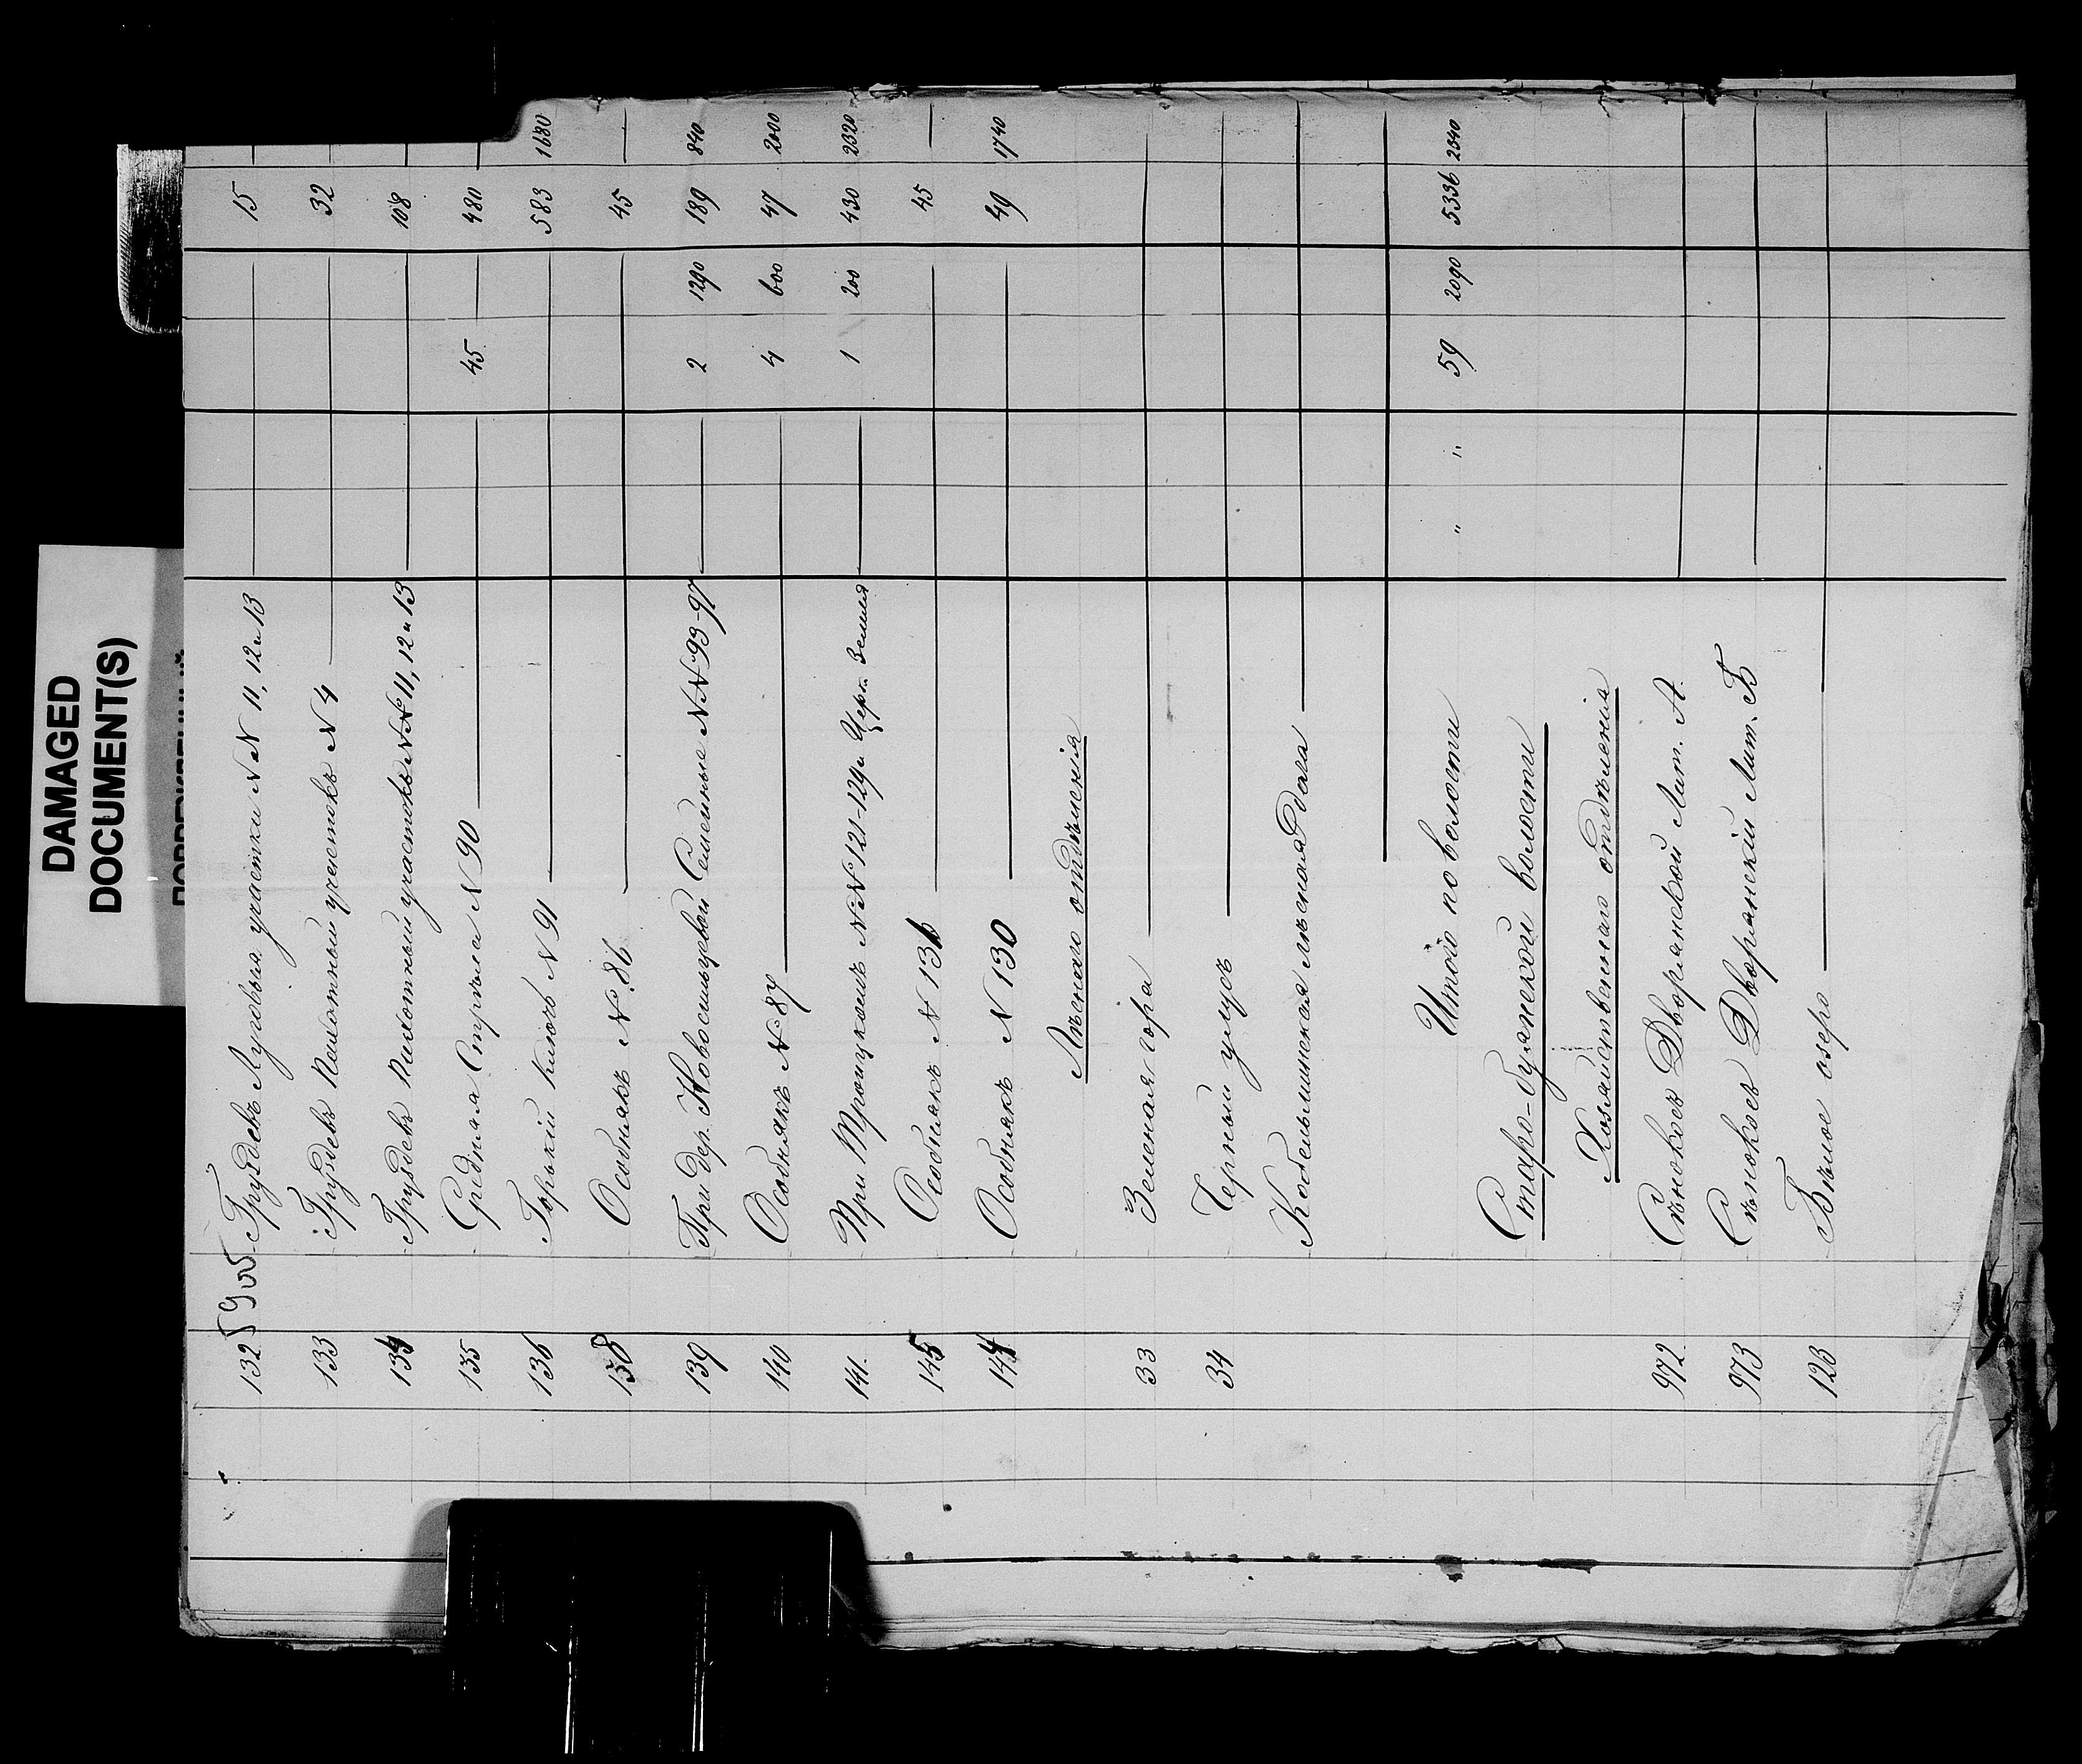 DAMAGED
DOCUMENT(S)
132 5905 Груздевъ Луговыя участки №№ 11, 12 и 13 15 —
133 Груздевъ Пахотный участокъ № 4 32 —
134 Груздевъ Пахотный участокъ №№ 11, 12 и 13 108 —
135 Средняя Стрѣла № 90 45 480 —
136 Горькій Ключъ № 91 583 1680
138 Особнякъ № 86 45 —
139 При дер. Новосильцевой Семенные №№ 93-97 2 1290 189 840
140 Особнякъ № 87 4 600 47 2000
141. При Троицкомъ №№ 121-129 и Церк. Земля 1 200 430 2320
145 Особнякъ № 136 45 —
144 Особнякъ № 130 49 1740
Лѣснаго отдѣленія
33 Зеленая гора
34 Черный улусъ
Кобельминская лѣсная дача
Итого по волости " " 59 2090 5336 2340
Старо-буянской волости
Хозяйственнаго отдѣленія
972 Сѣнокосъ Дворянской Лит. А.
973 Сѣнокосъ Дворянскій Лит. Б
123 Бѣлое озеро